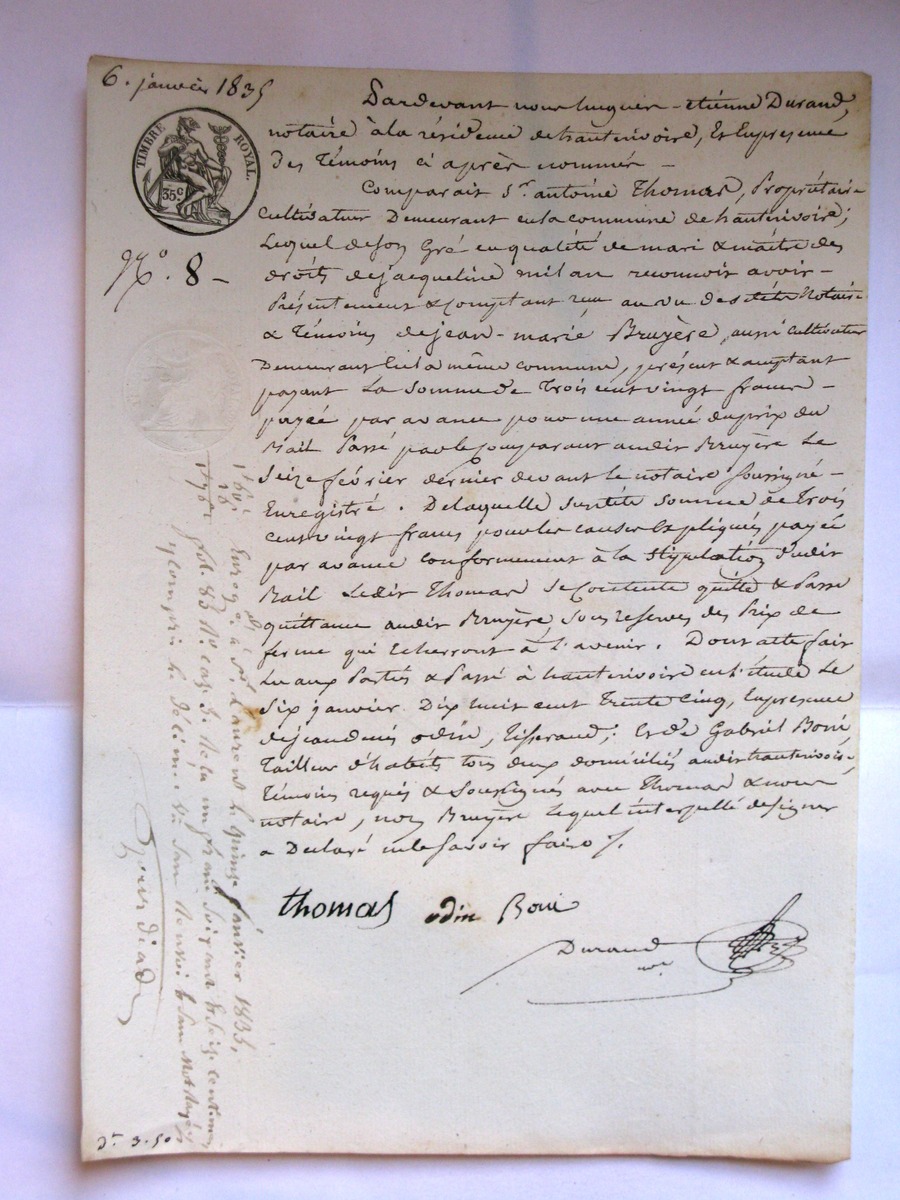 6. janvier 1835
TIMBRE ROYAL.
35c.
No. 8 –
Pardevant nous hugues-etienne Durand,
notaire à la résidence de hauterivoire, Et En presence
des Témoins ci après nommés –
Comparait Sr. antoine Thomas, Propriétaire
cultivateur Demeurant en la commune de hauterivoire;
Lequel de son Gré en qualité de mari & maître des
droits de jacqueline milan reconnoit avoir –
Présentement & comptant reçu au vu des Notaire
& Témoins de jean-marie Bruyère, aussi cultivateur
Demeurant en la même commune, présent & acceptant
payant La somme de Trois cent vingt francs –
payée par avance pour une année du prix du
Bail Passé par le comparant audit Bruyère Le
Seize février dernier devant le notaire soussigné –
Enregistré. De laquelle susdite somme de Trois
cent vingt francs pour les causes Expliquées payée
par avance conformement à la Stipulation dudit
Bail Ledit Thomas se contente quitte & Passe
quittance audit Bruyère sous reserves des Prix de
ferme qui Echerront à L'avenir. Dont acte fait
Lu aux Parties & Passé à hauterivoire en L'étude Le
Six janvier Dix huit cent Trente cinq, En presence
de jean denis odin, Tisserand; Et de Gabriel Boni,
Tailleur d'habits tous deux domiciliés audit hauterivoire,
Témoins requis & Soussignés avec Thomas & nous
notaire, non Bruyère Lequel interpellé de signer
a Declaré ne le Savoir faire /.
thomas odin Boni
Durand
nre
Enreg. à St. Laurent le quinze Janvier 1835,
fol. 83 Ro. case 3. Reçu un franc soixante & seize centimes
y compris le décime
Dt. 3-50